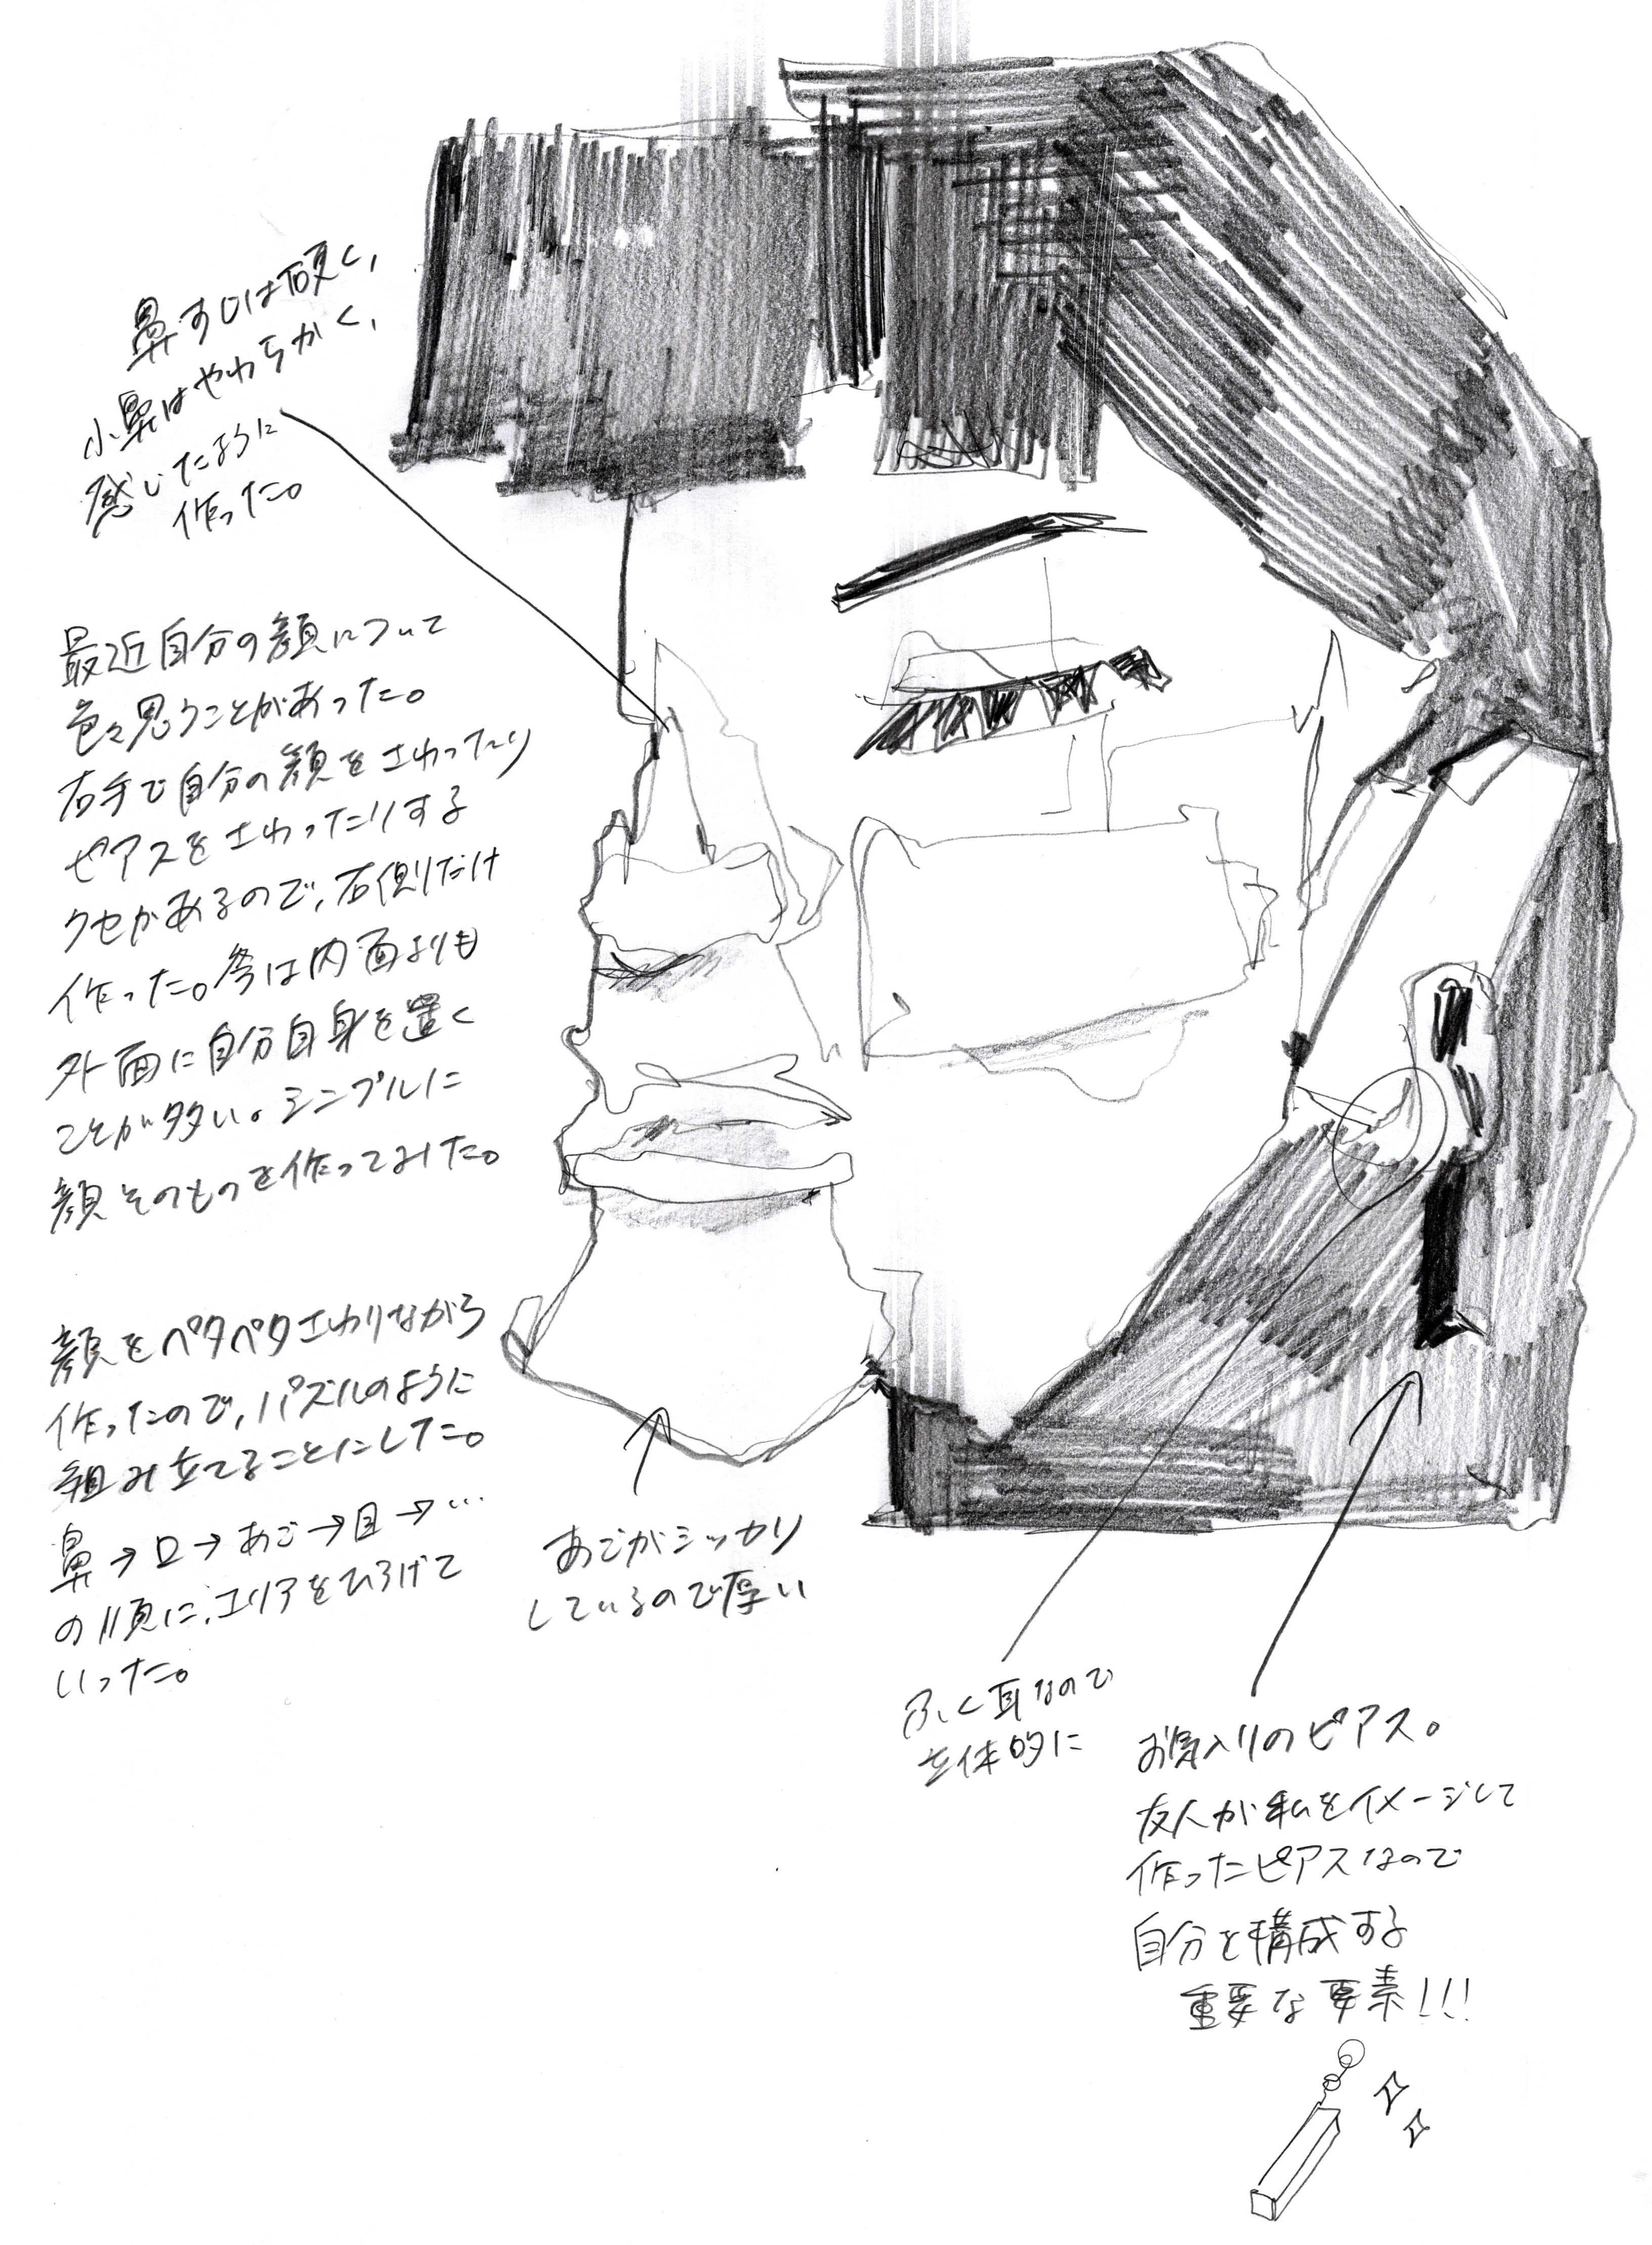 鼻すじは硬く,
小鼻はやわらかく,
感じたように
作った。
最近自分の顔について
色々思うことがあった。
右手で自分の顔をさわったり
ピアスをさわったりする
クセがあるので,右側だけ
作った。今は内面よりも
外面に自分自身を置く
ことが多い。シンプルに
顔そのものを作ってみた。
顔をペタペタさわりながら
作ったので,パズルのように
組み立てることにした。
鼻→口→あご→目→…
の順に,エリアをひろげて
いった。
あごがシッカリ
しているので厚い
ふく耳なので
立体的に
お気入りのピアス。
友人が私をイメージして
作ったピアスなので
自分を構成する
重要な要素!!!